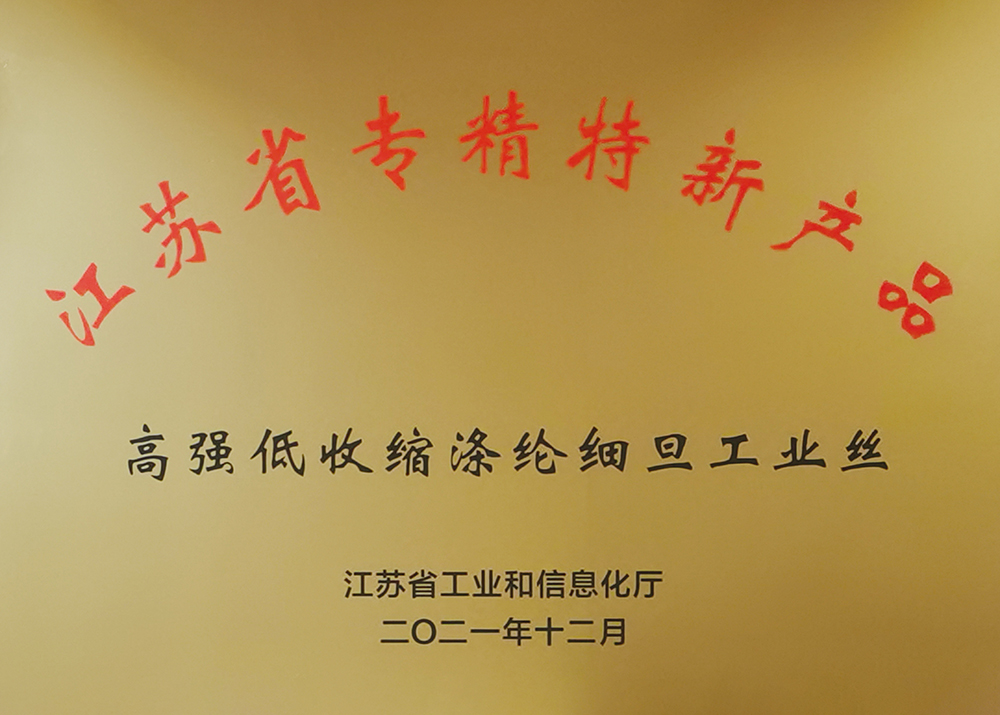 江苏省专精特新产品
高强低收缩涤纶细旦工业丝
江苏省工业和信息化厅
二〇二一年十二月